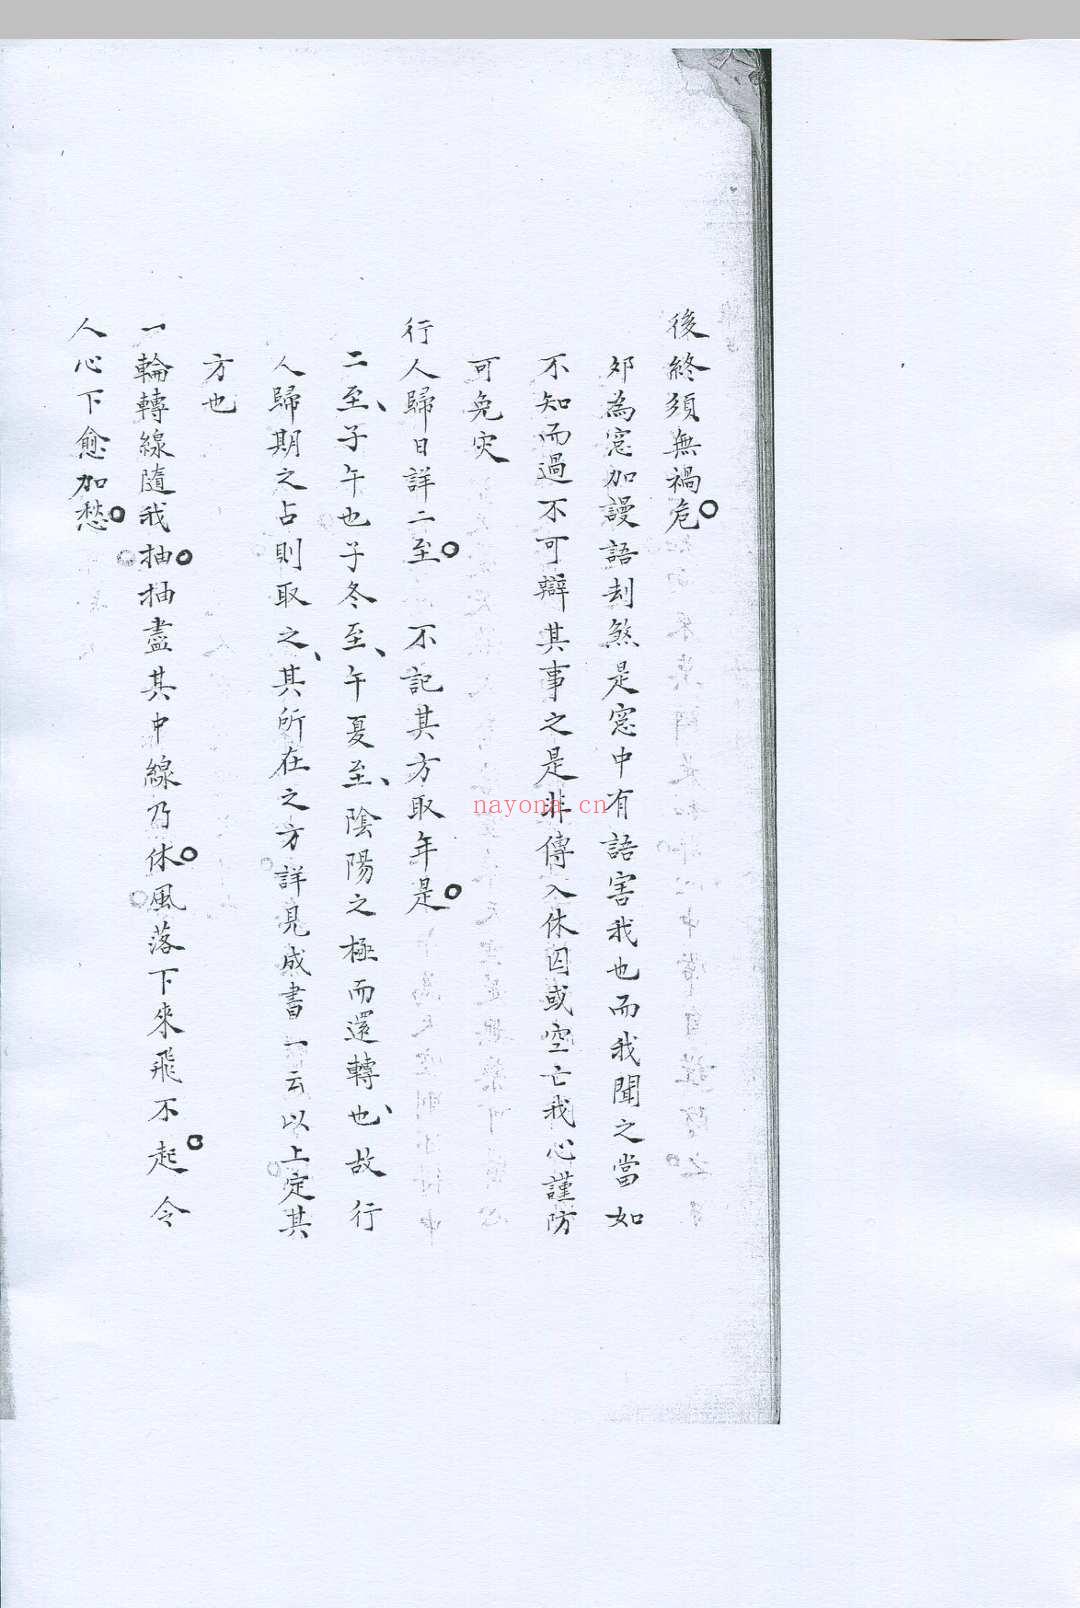 後終須無禍危。
夘為窓加謾語刦煞是窓中有語害我也而我聞之當如
不知而過不可辯其事之是非傳入休囚或空亡我心謹防
可免灾
行人歸日詳二至。不記其方取年是。
二至、子午也子冬至、午夏至、陰陽之極而還轉也、故行
人歸期之占則取之、其所在之方詳見成書一云以上定其
方也
一輪轉線隨我抽。抽盡其中線乃休。風落下來飛不起。令
人心下愈加愁。
nayona.cn